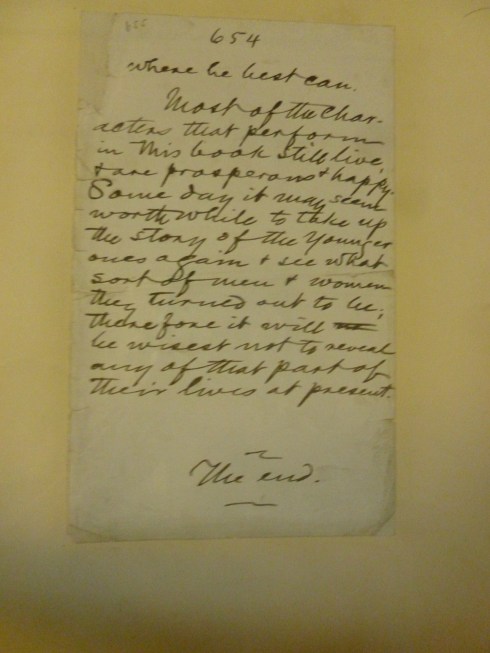 654
where he best can.
Most of the char-
acters that perform
in this book still live,
& are prosperous & happy.
Some day it may seem
worth while to take up
the story of the Younger
ones again & see what
sort of men & women
they turned out to be;
therefore it will
be wisest not to reveal
any of that part of
their lives at present.
The end.